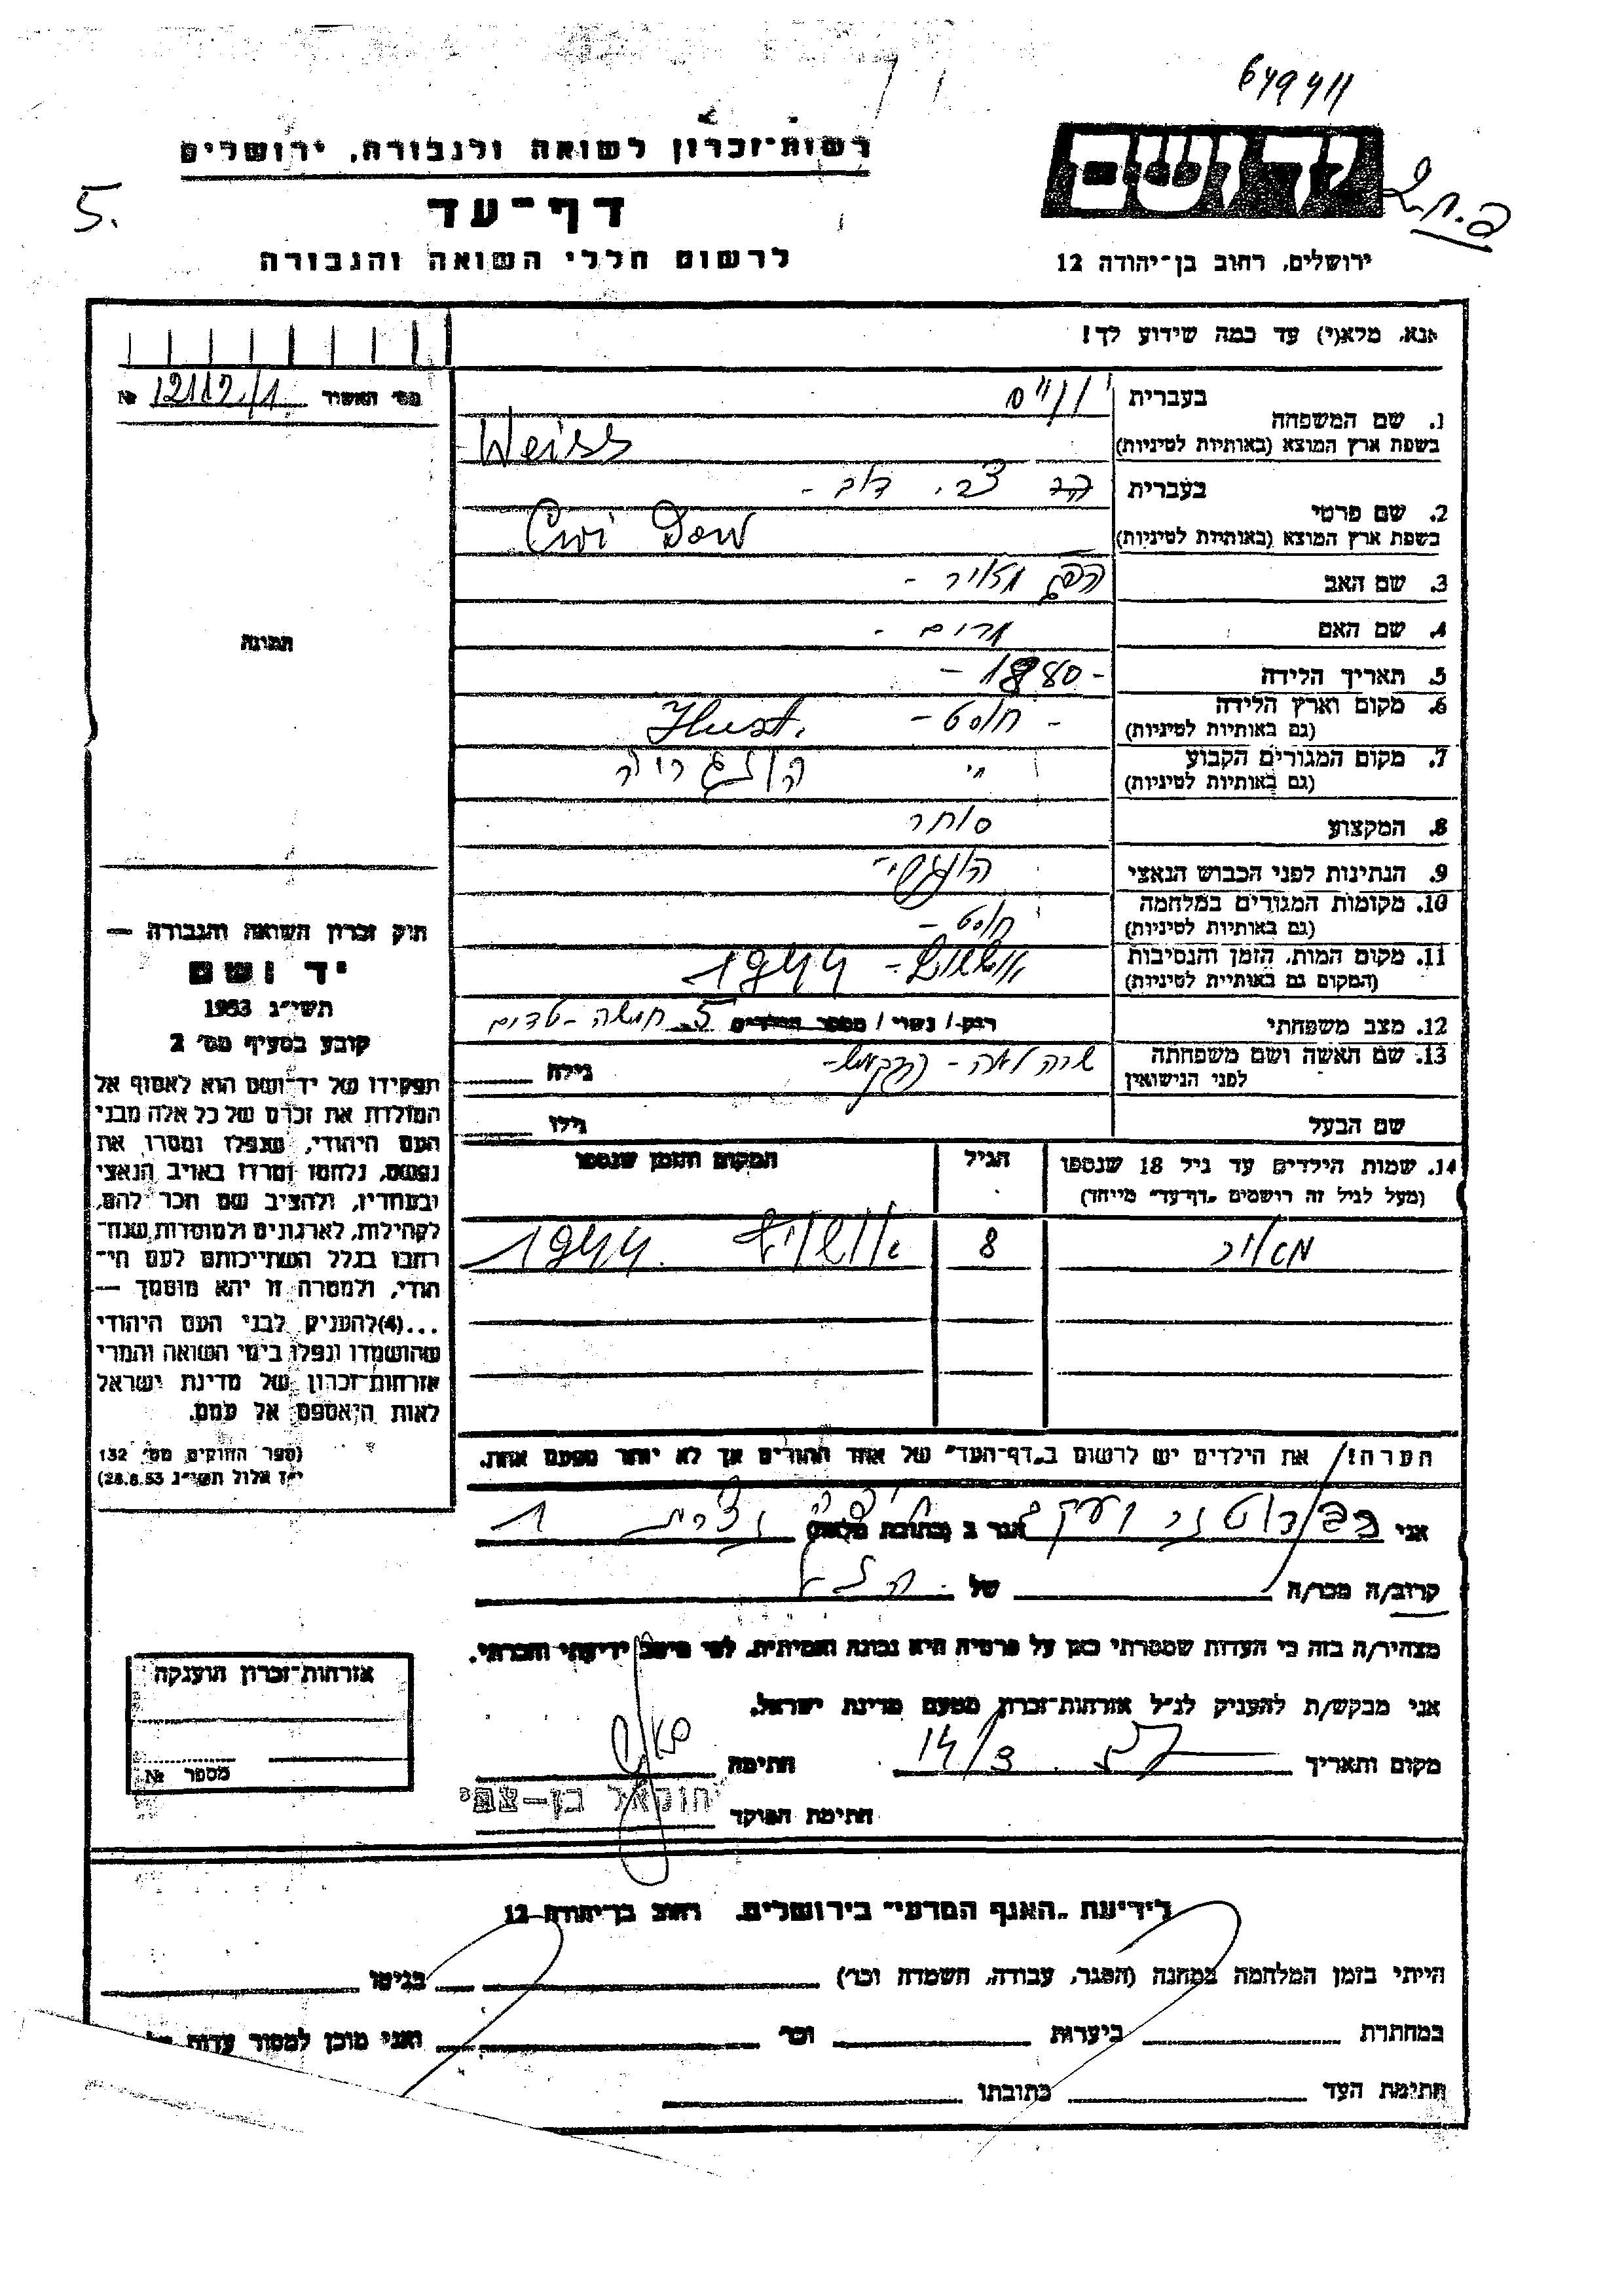 649411
רשות־זכרון לשואה ולגבורה, ירושלים
יד ושם
5.
דף־עד
לרשום חללי השואה והגבורה
ירושלים, רחוב בן־יהודה 12
אנא, מלא(י) עד כמה שידוע לך!
מס׳ האשור № 12112/1
1. שם המשפחה
בעברית ווייס
בשפת ארץ המוצא (באותיות לטיניות) Weiss
2. שם פרטי
בעברית צבי דוב -
בשפת ארץ המוצא (באותיות לטיניות) Cwi Dow
3. שם האב מאיר -
4. שם האם מרים -
5. תאריך הלידה - 1880 -
6. מקום וארץ הלידה (גם באותיות לטיניות) - חוסט - Hust.
7. מקום המגורים הקבוע (גם באותיות לטיניות) הונגריה
8. המקצוע סוחר
9. הנתינות לפני הכבוש הנאצי
10. מקומות המגורים במלחמה (גם באותיות לטיניות) חוסט -
11. מקום המות, הזמן והנסיבות (המקום גם באותיות לטיניות) אושוויץ - 1944
12. מצב משפחתי רוק/ נשוי/ מספר הילדים 5
13. שם האשה ושם משפחתה לפני הנישואין שרה לאה - גילה
שם הבעל גילו
14. שמות הילדים עד גיל 18 שנספו (מעל לגיל זה רושמים „דף־עד״ מיוחד)
הגיל
המקום והזמן שנספו
מאיר 8 אושוויץ 1944
הערה! את הילדים יש לרשום ב„דף־העד״ של אחד ההורים אך לא יותר מפעם אחת.
תמונה
חוק זכרון השואה והגבורה —
יד ושם
תשי״ג 1953
קובע בסעיף מס׳ 2
תפקידו של יד־ושם הוא לאסוף אל
המולדת את זכרם של כל אלה מבני
העם היהודי, שנפלו ומסרו את
נפשם, נלחמו ומרדו באויב הנאצי
ובעוזריו, ולהציב שם וזכר להם,
לקהילות, לארגונים ולמוסדות שנח־
רבו בגלל השתייכותם לעם הי־
הודי, ולמטרה זו יהא מוסמך —
...(4)להעניק לבני העם היהודי
שהושמדו ונפלו בימי השואה והמרי
אזרחות־זכרון של מדינת ישראל
לאות היאספם אל עמם.
(ספר החוקים מס׳ 132
י״ז אלול תשי״ג 28.8.53)
אני יעקב הגר ב (כתובת מלאה) חיפה 1
קרוב/ה מכר/ה של
מצהיר/ה בזה כי העדות שמסרתי כאן על פרטיה היא נכונה ואמיתית, לפי מיטב ידיעתי והכרתי.
אני מבקש/ת להעניק לנ״ל אזרחות־זכרון מטעם מדינת ישראל.
מקום ותאריך 14/3. 57 חתימה
חתימת הפוקד יחזקאל בן-צבי
אזרחות־זכרון הוענקה
מספר №
לידיעת „האגף המדעי״ בירושלים, רחוב בן־יהודה 12
הייתי בזמן המלחמה במחנה (הסגר, עבודה, השמדה וכו׳) בגיטו
במחתרת ביערות וכו׳ ואני מוכן למסור עדות
חתימת העד כתובתו